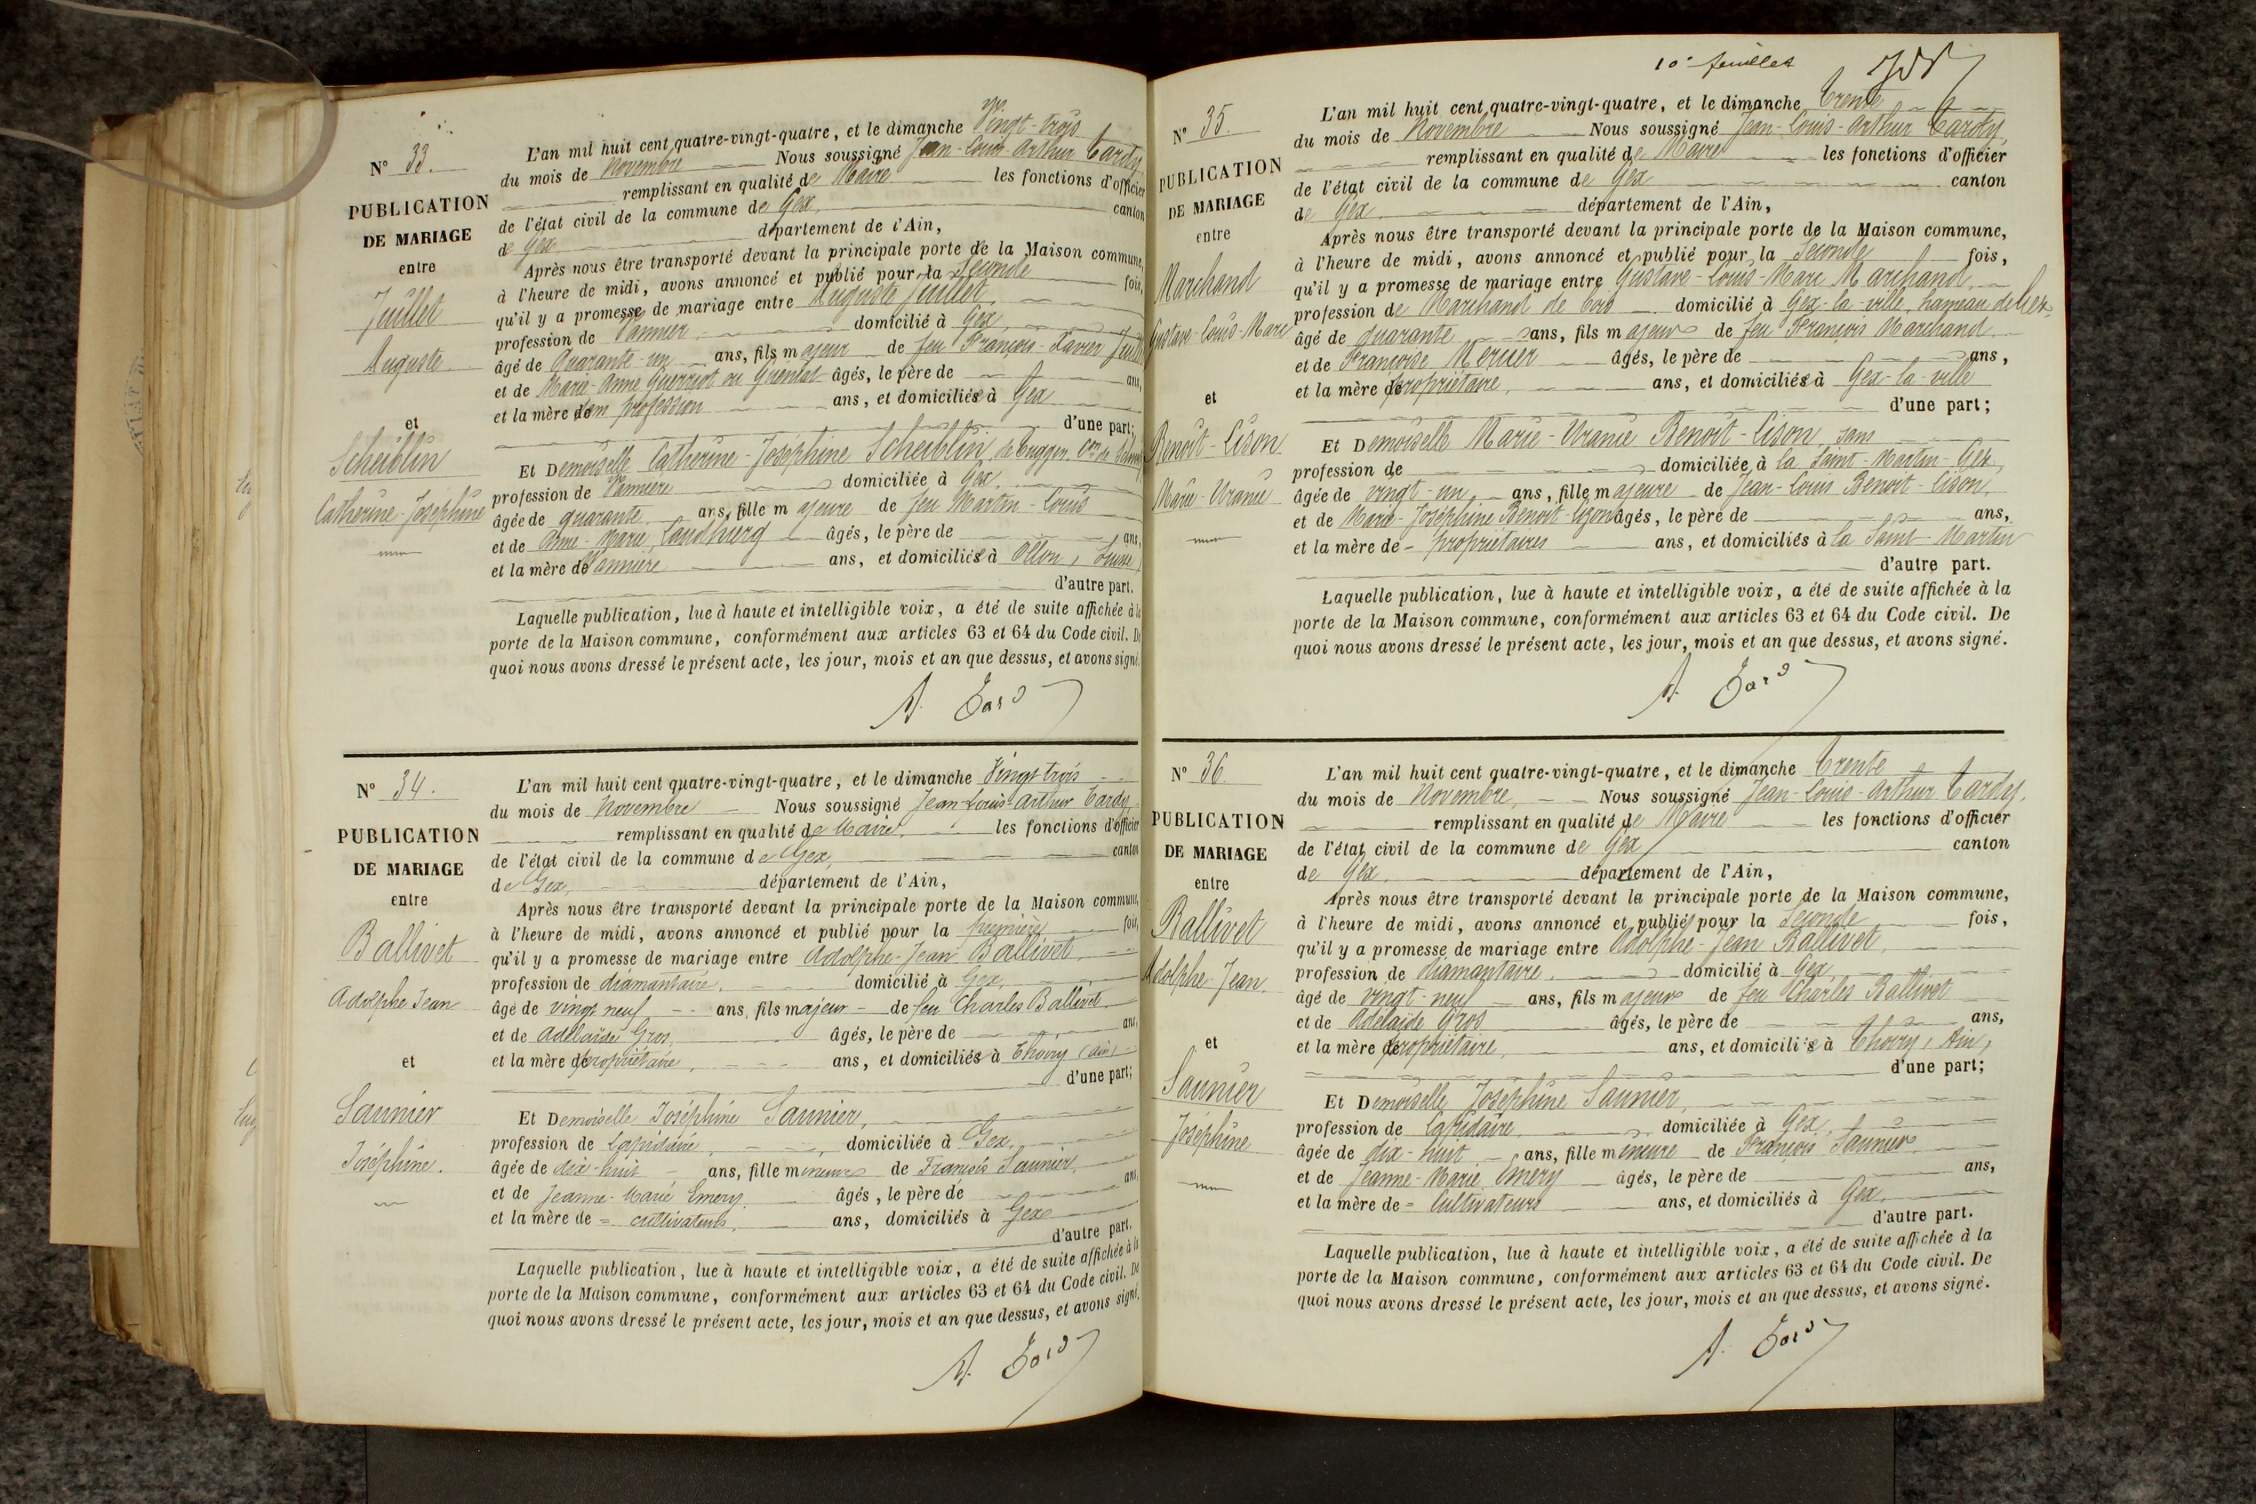 N° 33.
PUBLICATION
DE MARIAGE
entre
Juillet
Auguste
et
Scheiblin
Catherine-Joséphine
L'an mil huit cent quatre-vingt-quatre, et le dimanche Vingt-trois
du mois de Novembre Nous soussigné Jean-Louis-Arthur Tardy
remplissant en qualité de Maire les fonctions d'officier
de l'état civil de la commune de Gex canton
de Gex département de l'Ain,
Après nous être transporté devant la principale porte de la Maison commune,
à l'heure de midi, avons annoncé et publié pour la Seconde fois,
qu'il y a promesse de mariage entre Auguste Juillet
profession de Vannier domicilié à Gex
âgé de Quarante-un ans, fils majeur de feu François-Xavier
et de Marie-Anne ou âgés, le père de ans,
et la mère de sans profession ans, et domiciliés à Gex
d'une part;
Et Demoiselle Catherine-Joséphine Scheiblin de Tuggen
profession de Vannière domiciliée à Gex
âgée de quarante ans, fille majeure de feu Martin-Louis
et de Anne-Marie âgés, le père de ans,
et la mère de Vannière ans, et domiciliés à Ollon, Suisse
d'autre part.
Laquelle publication, lue à haute et intelligible voix, a été de suite affichée à la
porte de la Maison commune, conformément aux articles 63 et 64 du Code civil. De
quoi nous avons dressé le présent acte, les jour, mois et an que dessus, et avons signé.
A. Tardy
N° 34.
PUBLICATION
DE MARIAGE
entre
Ballivet
Adolphe Jean
et
Saunier
Joséphine.
L'an mil huit cent quatre-vingt-quatre, et le dimanche Vingt trois
du mois de Novembre Nous soussigné Jean-Louis-Arthur Tardy
remplissant en qualité de Maire les fonctions d'officier
de l'état civil de la commune de Gex canton
de Gex département de l'Ain,
Après nous être transporté devant la principale porte de la Maison commune,
à l'heure de midi, avons annoncé et publié pour la première fois,
qu'il y a promesse de mariage entre Adolphe-Jean Ballivet
profession de diamantaire domicilié à Gex
âgé de vingt neuf ans, fils majeur de feu Charles Ballivet
et de Adélaïde Gros âgés, le père de ans,
et la mère de propriétaire ans, et domiciliés à Thoiry (Ain)
d'une part;
Et Demoiselle Joséphine Saunier,
profession de Lapidaire domiciliée à Gex
âgée de dix-huit ans, fille mineure de François Saunier
et de Jeanne-Marie Emery âgés, le père de ans,
et la mère de = cultivateurs ans, domiciliés à Gex
d'autre part.
Laquelle publication, lue à haute et intelligible voix, a été de suite affichée à la
porte de la Maison commune, conformément aux articles 63 et 64 du Code civil. De
quoi nous avons dressé le présent acte, les jour, mois et an que dessus, et avons signé.
A. Tardy
10e feuillet
N° 35.
PUBLICATION
DE MARIAGE
entre
Marchand
Gustave-Louis-Marc
et
Benoît-Lison
Marie-Uranie
L'an mil huit cent quatre-vingt-quatre, et le dimanche Trente
du mois de Novembre Nous soussigné Jean-Louis-Arthur Tardy
remplissant en qualité de Maire les fonctions d'officier
de l'état civil de la commune de Gex canton
de Gex département de l'Ain,
Après nous être transporté devant la principale porte de la Maison commune,
à l'heure de midi, avons annoncé et publié pour la Seconde fois,
qu'il y a promesse de mariage entre Gustave-Louis-Marc Marchand
profession de Marchand de bois domicilié à Gex-la-ville, hameau de Gex
âgé de quarante ans, fils majeur de feu François Marchand
et de Françoise Mercier âgés, le père de ans,
et la mère de propriétaire ans, et domiciliés à Gex-la-ville
d'une part;
Et Demoiselle Marie-Uranie Benoît-Lison sans
profession de domiciliée à la Saint-Martin-Gex
âgée de vingt-un ans, fille majeure de Jean-Louis Benoît-Lison
et de Marie-Joséphine Benoît-Lizon âgés, le père de ans,
et la mère de = propriétaires ans, et domiciliés à la Saint-Martin
d'autre part.
Laquelle publication, lue à haute et intelligible voix, a été de suite affichée à la
porte de la Maison commune, conformément aux articles 63 et 64 du Code civil. De
quoi nous avons dressé le présent acte, les jour, mois et an que dessus, et avons signé.
A. Tardy
N° 36
PUBLICATION
DE MARIAGE
entre
Ballivet
Adolphe-Jean.
et
Saunier
Joséphine
L'an mil huit cent quatre-vingt-quatre, et le dimanche Trente
du mois de Novembre, Nous soussigné Jean-Louis-Arthur Tardy.
remplissant en qualité de Maire les fonctions d'officier
de l'état civil de la commune de Gex canton
de Gex département de l'Ain,
Après nous être transporté devant la principale porte de la Maison commune,
à l'heure de midi, avons annoncé et publié pour la Seconde fois,
qu'il y a promesse de mariage entre Adolphe-Jean Ballivet
profession de Diamantaire domicilié à Gex
âgé de vingt-neuf ans, fils majeur de feu Charles Ballivet
et de Adélaïde Gros âgés, le père de ans,
et la mère de propriétaire ans, et domiciliés à Thoiry, Ain,
d'une part;
Et Demoiselle Joséphine Saunier
profession de Lapidaire domiciliée à Gex
âgée de dix-huit ans, fille mineure de François Saunier
et de Jeanne-Marie Emery âgés, le père de ans,
et la mère de = Cultivateurs ans, et domiciliés à Gex
d'autre part.
Laquelle publication, lue à haute et intelligible voix, a été de suite affichée à la
porte de la Maison commune, conformément aux articles 63 et 64 du Code civil. De
quoi nous avons dressé le présent acte, les jour, mois et an que dessus, et avons signé.
A. Tardy